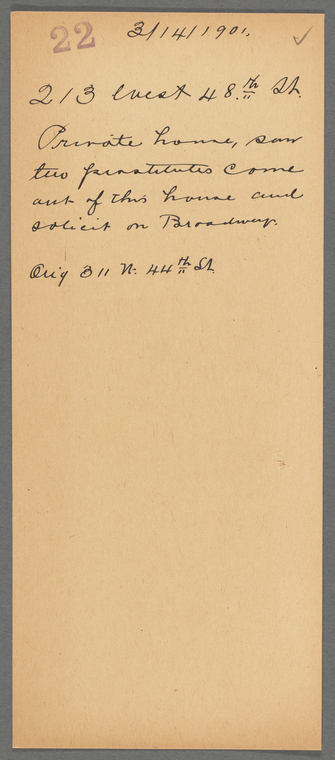 22 3/14/1901.
213 West 48.th St.
Private house, saw
two prostitutes come
out of this house and
solicit on Broadway.
Orig 311 W. 44th St.